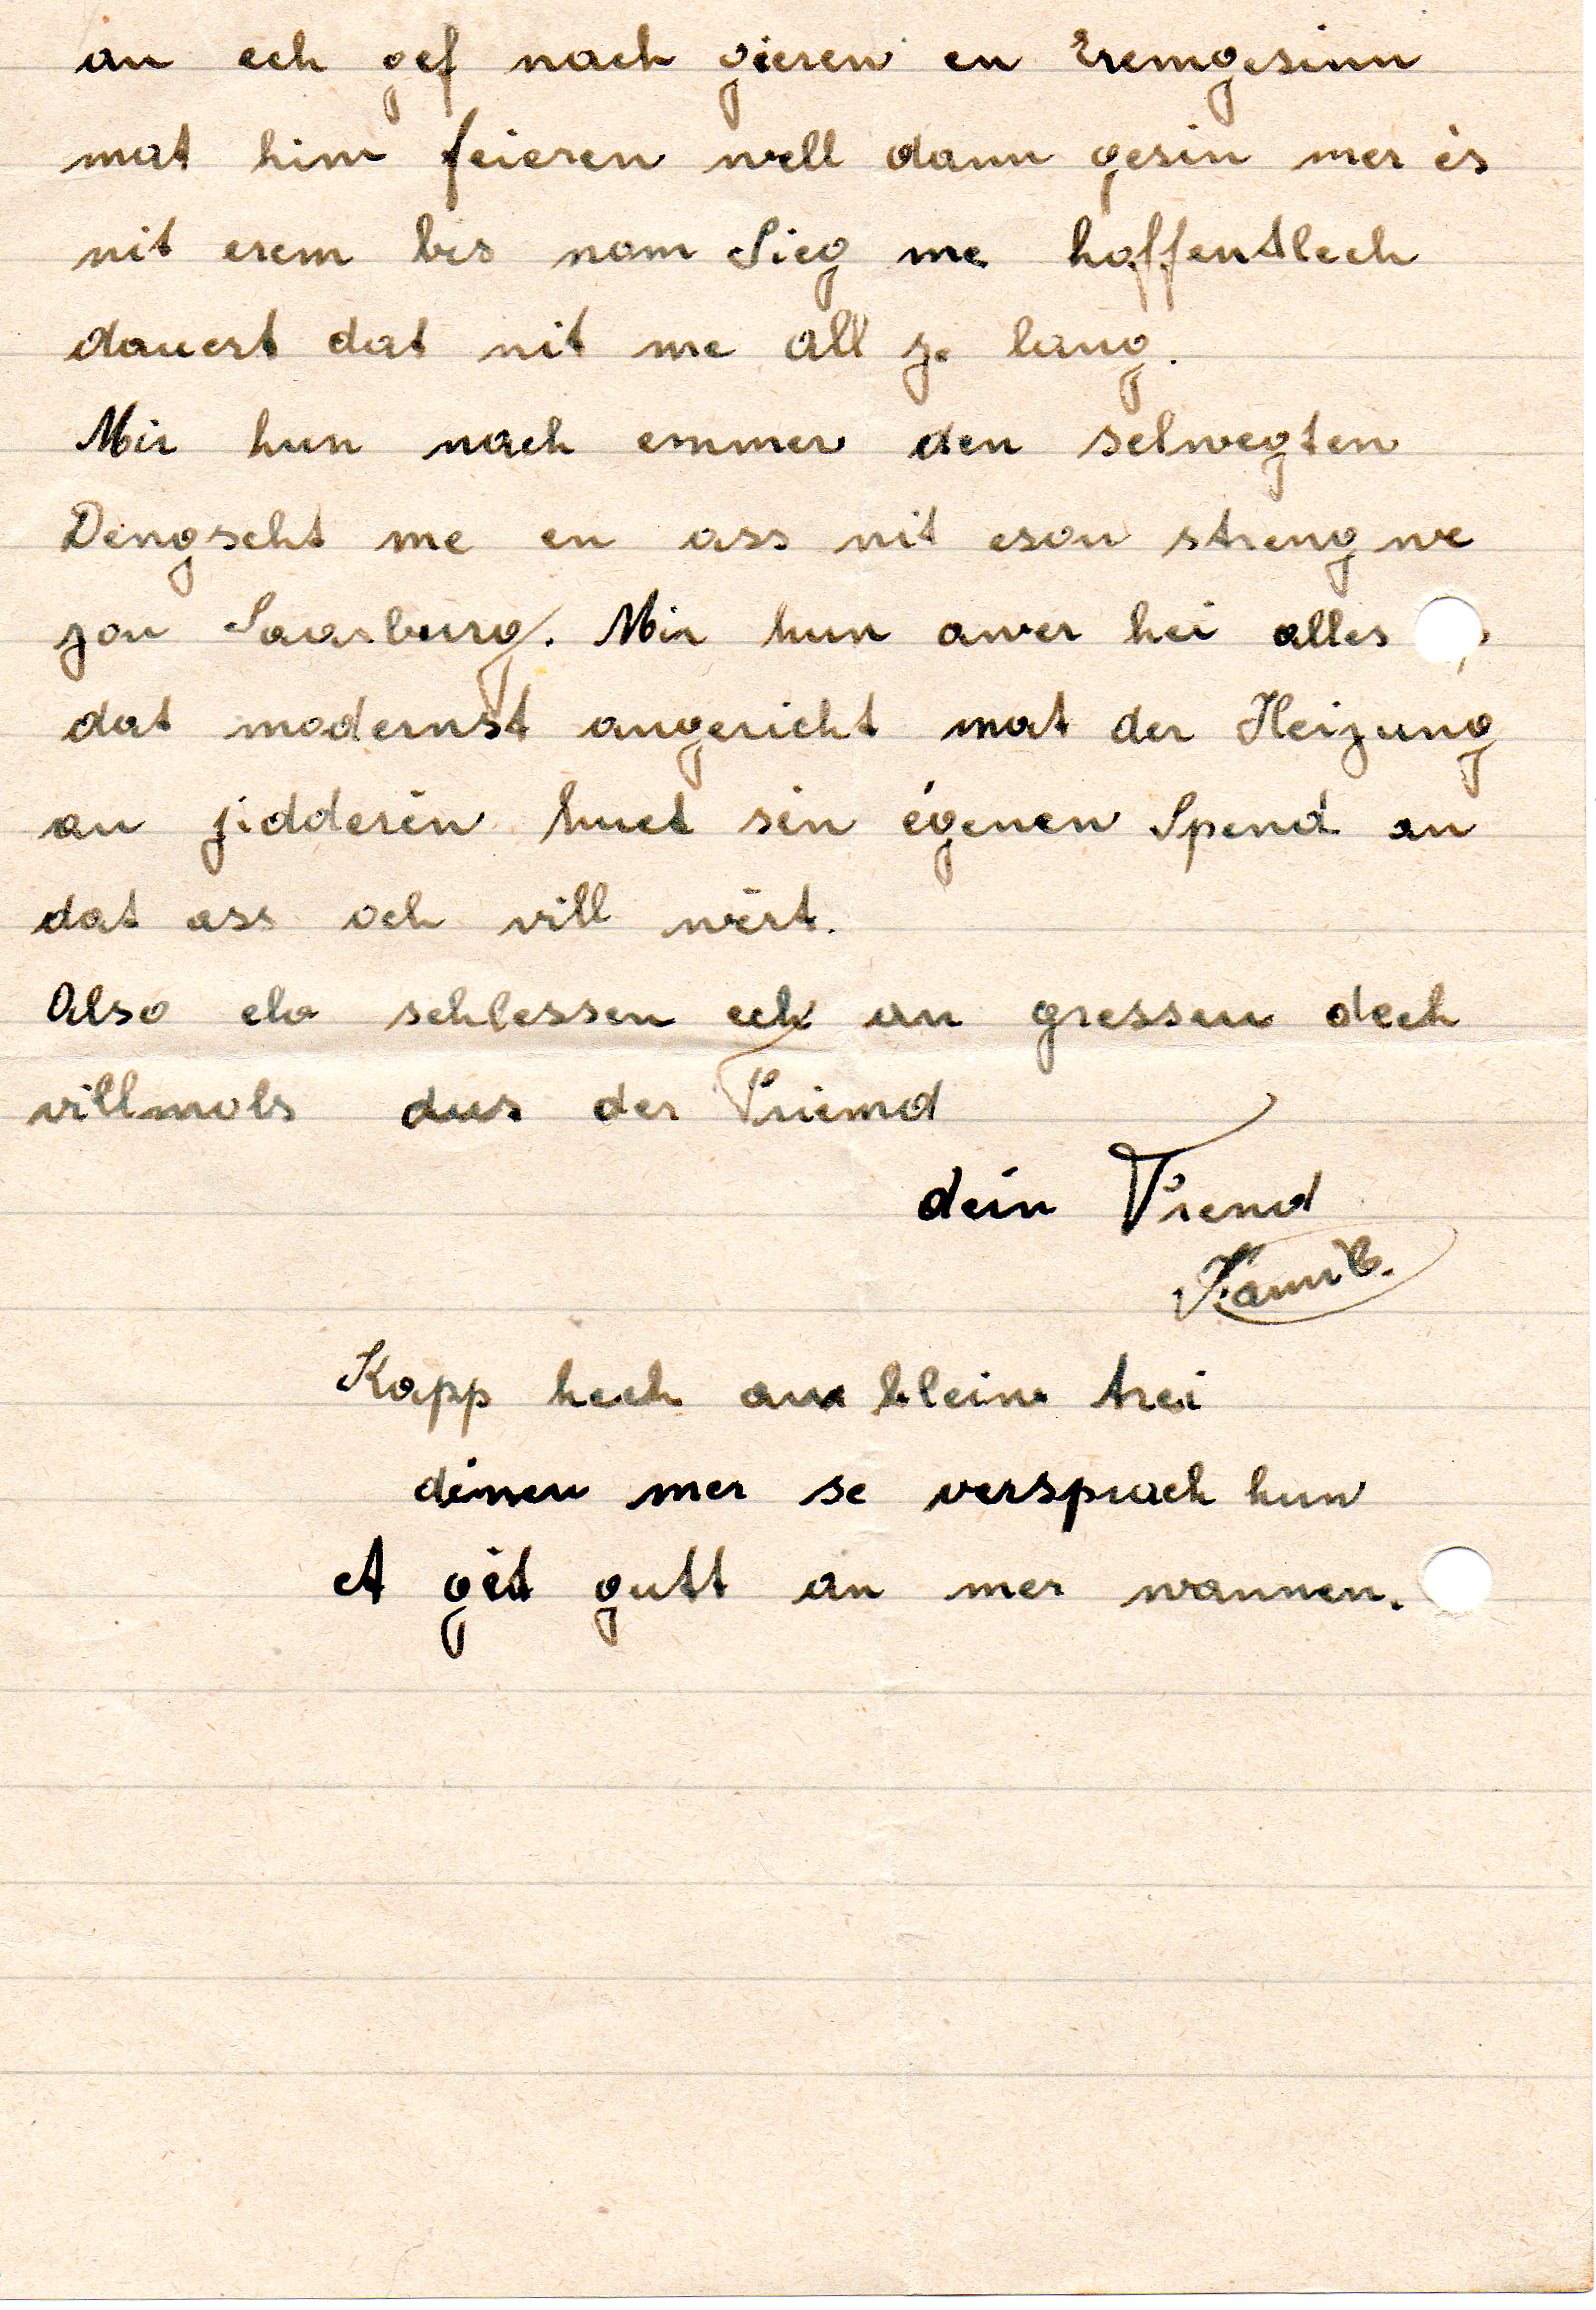 an ech gef nach gieren en Eremgesinn
mat him feieren well dann gesin mer ės
nit erem bes nom Sieg me hoffentlech
dauert dat nit me all ze lang.
Mir hun nach emmer den selwegten
Dengscht me en ass nit eson streng we
zou Saarburg. Mir hun awer hei alles
dat modernst angericht mat der Heizung
an jidderēn huet sėn ėgenen Spend an
dat ass och vill wėrt.
Also elo schlessen ech an gressen dech
villmols dus der Friend
dein Friend
Kapp hech an bleiw trei
dėnen mer se versprach hun
et gėt gutt an mer wannen.